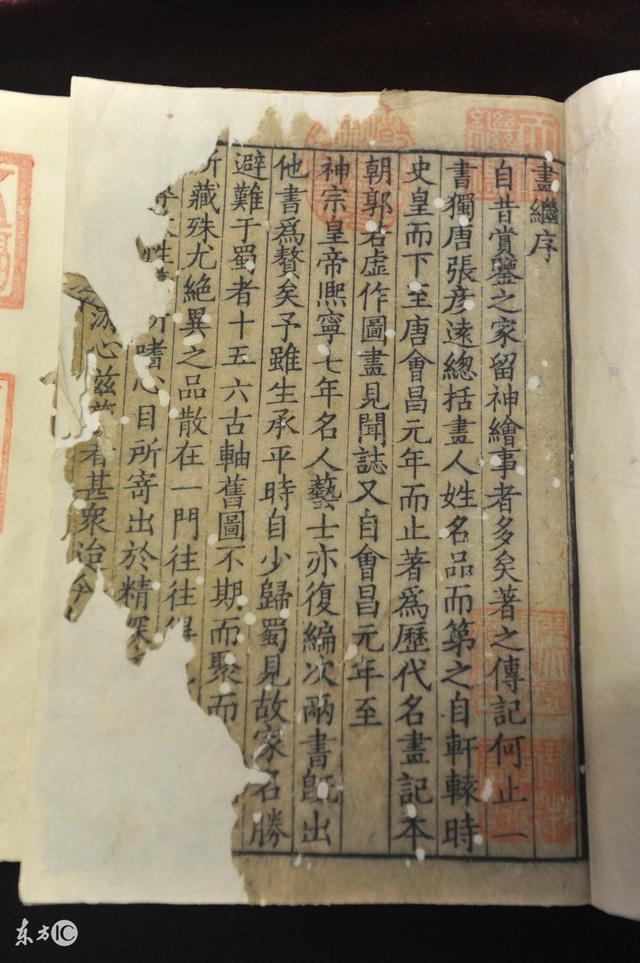 畫繼序
自昔賞鑒之家留神繪事者多矣著之傳記何止一
書獨唐張彥遠總括畫人姓名品而第之自軒轅時
史皇而下至唐會昌元年而止著爲歷代名畫記本
朝郭若虛作圖畫見聞誌又自會昌元年至
神宗皇帝熙寧七年名人藝士亦復編次兩書旣出
他書爲贅矣予雖生承平時自少歸蜀見故家名勝
避難于蜀者十五六古軸舊圖不期而聚而
所藏殊尤絕異之品散在一門往往得
嗜心目所寄出於精深
游心兹者甚衆迨今
东方IC